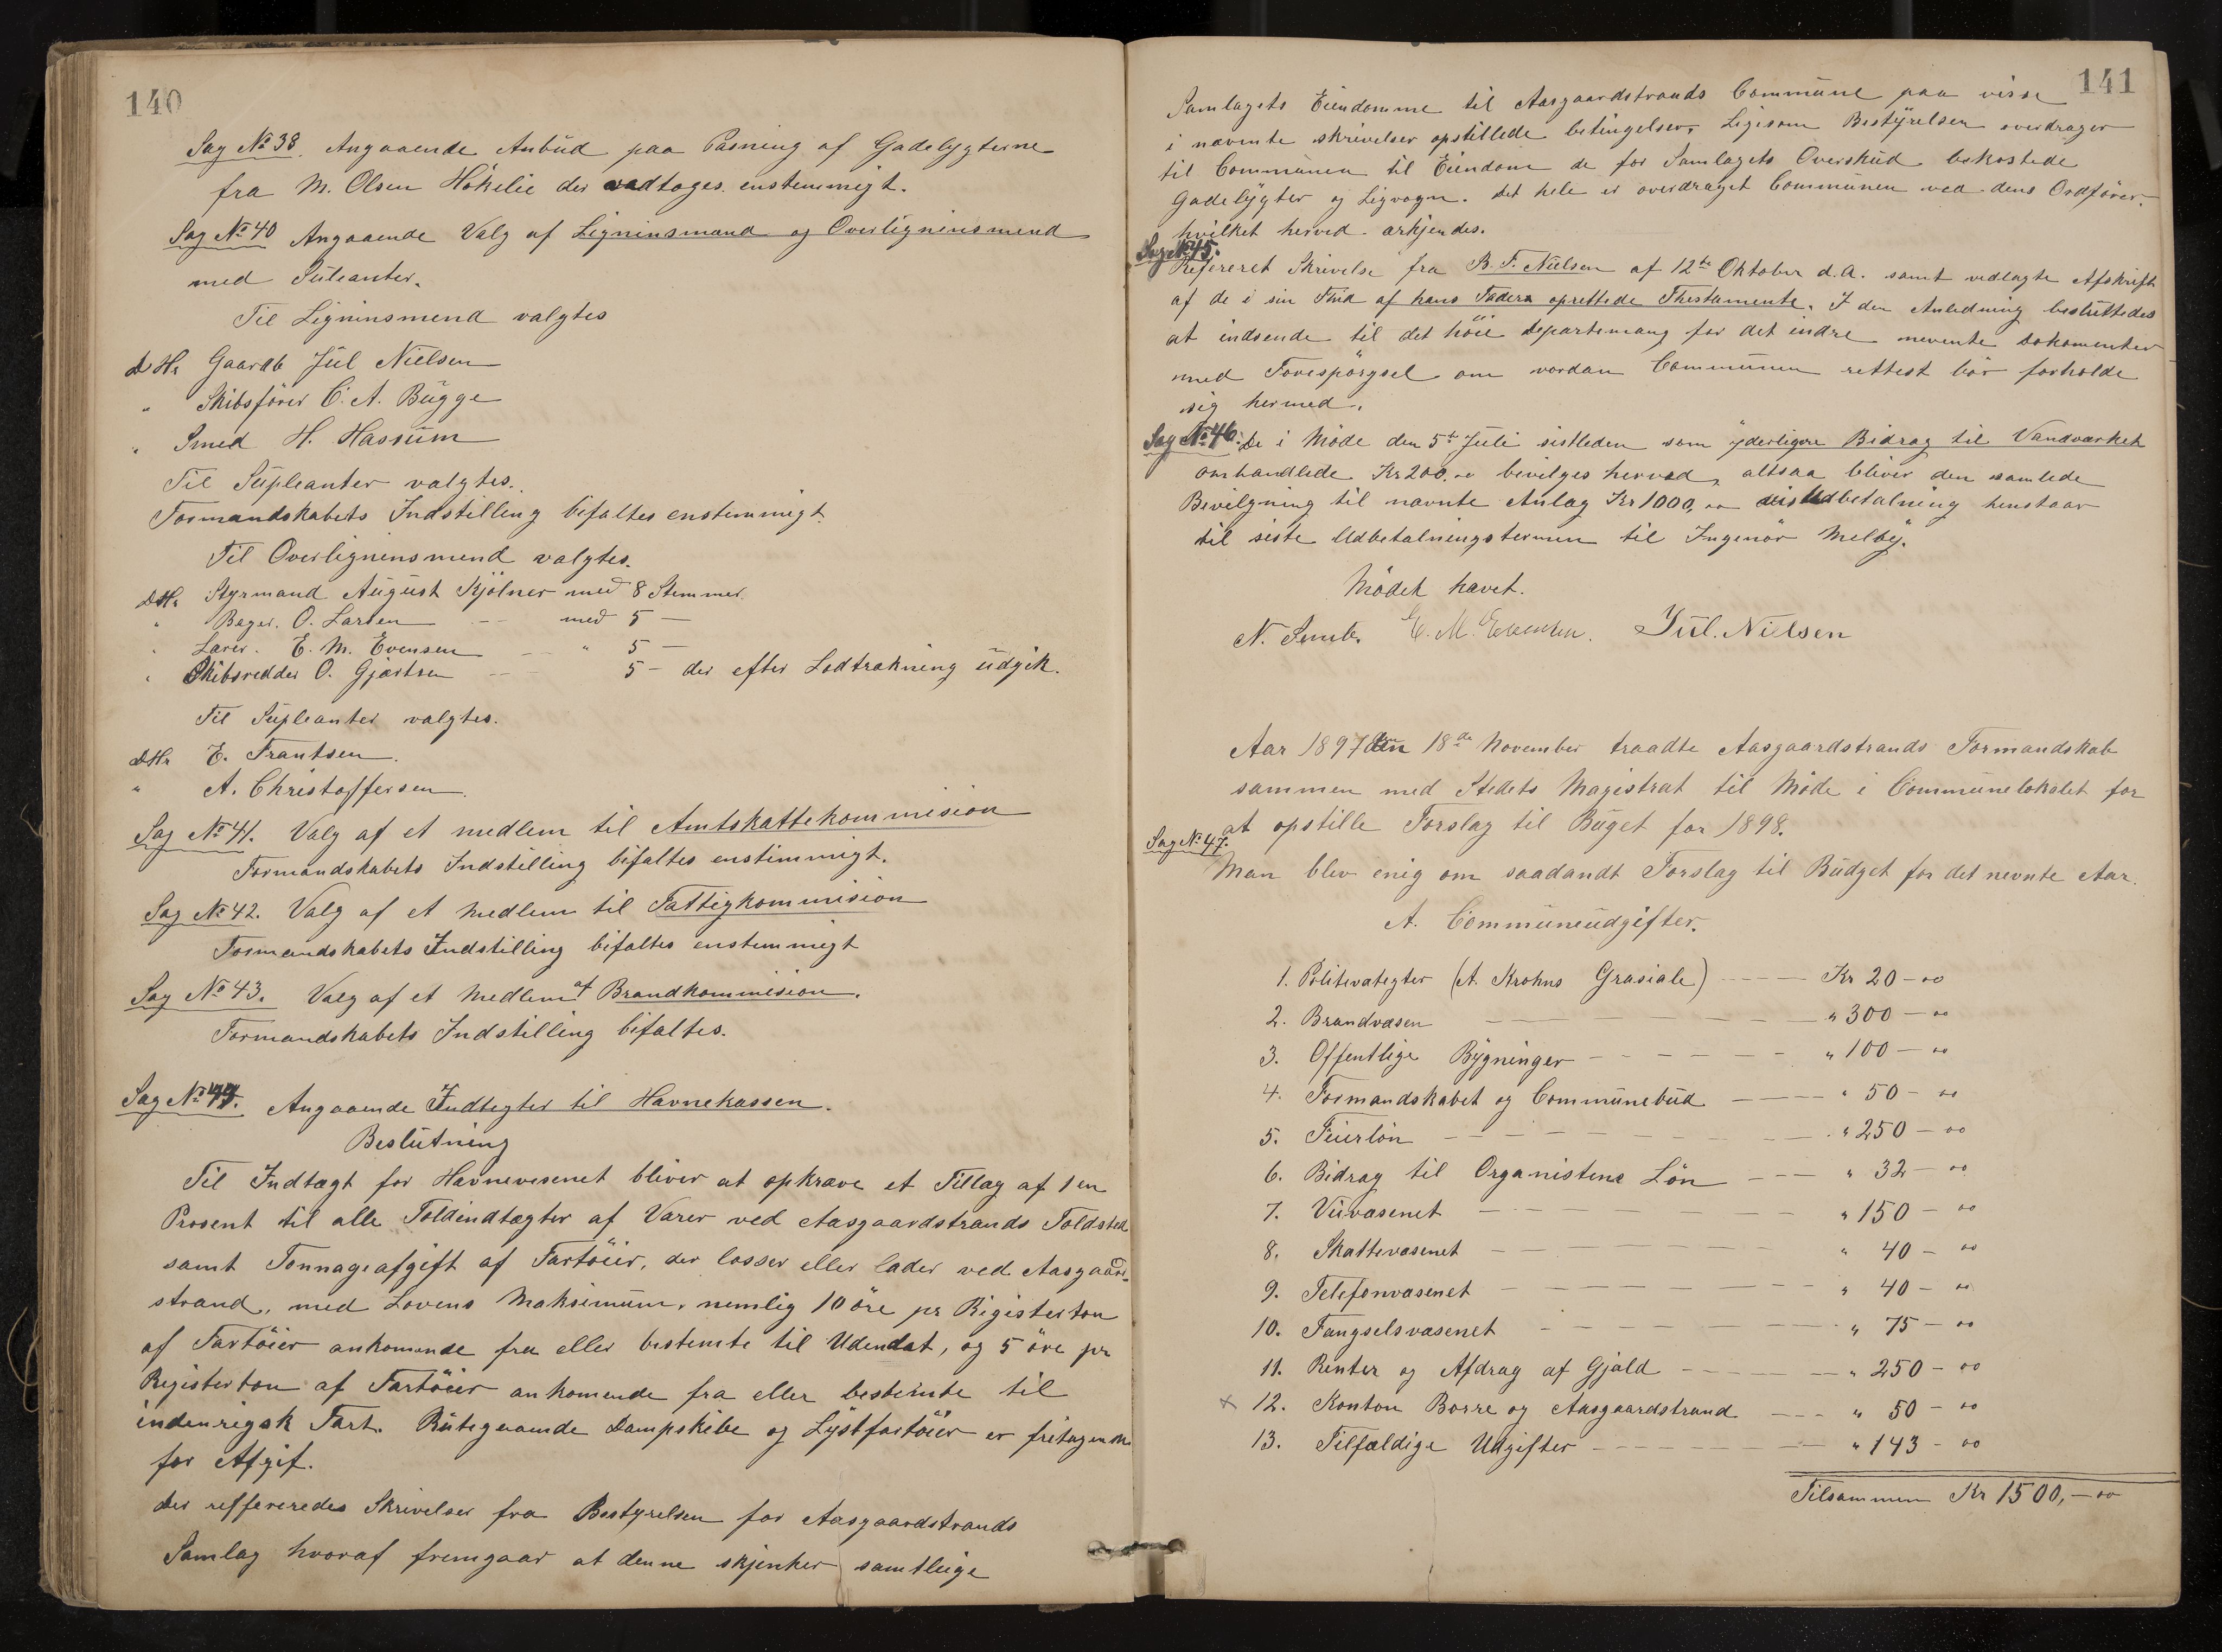 140
Sag № 38. Angaaende Anbud paa Pasning af Gadelygterne
fra M. Olsen Hökelie der vedtoges enstemmigt.
Sag № 40 Angaaende Valg af Ligninsmænd og Overligninsmend
med Supleanter.
Til Ligninsmend valgtes
D Hr Gaardb Jul Nielsen
" Skibsförer C. A. Bügge
" Smed H. Hassum
Til Supleanter valgtes.
Formandskabets Indstilling bifaltes enstemmigt.
Til Overligninsmend valgtes.
D Hr Styrmand August Kjölner med 8 Stemmer.
" Bager. O. Larsen — med 5 —
" Lærer. E. M. Evensen — " 5 —
" Skibsredder O. Gjærtsen — 5 — der efter Lodtrækning üdgik.
Til Supleanter valgtes.
D Hr E. Frantsen.
" A. Christoffersen.
Sag № 41. Valg af et medlem til Amtskattekommision
Formandskabets Indstilling bifaltes enstimmigt.
Sag № 42. Valg af et Medlem til Fattigkommision
Formandskabets Indstilling bifaltes enstemmigt
Sag № 43. Valg af et Medlem af Brandkommision.
Formandskabets Indstilling bifaltes.
Sag № 44. Angaaende Indtegter til Havnekassen.
Beslutning
Til Indtægt for Havnevesenet bliver at opkræve et Tillæg af 1 en
Prosent til alle Toldindtægter af Varer ved Aasgaardstrands Toldsted
samt Tonnageafgift af Fartöier, der losser eller lader ved Aasgaard-
strand, med Lovens Maksimum. nemlig 10 öre pr Rigisterton
af Fartöier ankomende fra eller bestemte til Udendat, og 5 öre pr
Registerton af Fartöier ankomende fra eller bestemte til
indenrigsk Fart. Rütegaaende Dampskibe og Lystfartöier er fritagende
for Afgif.
Der reffereredes Skrivelser fra Bestyrelsen for Aasgaardstrands
Samlag hvoraf fremgaar at denne skjenker samtleige
141
Samlagets Eiendomme til Aasgaardstrands Commune paa visse
i nævnte skrivelser opstillede betingelser. Ligesom Bestyrelsen overdrager
til Communen til Eiendom de for Samlagets Overskud bekostede
Gadelygter og Ligvogn. Det hele er overdraget Communen ved dens Ordförer.
hvilket herved erkjendes.
Sag № 45.
Refereret Skrivelse fra B. F. Nielsen af 12te Oktober d.A. samt vedlagte Afskrift
af de i sin Thid af hans Faders oprettede Thestamente. I den Anledning besluttedes
at indsende til det höie Departemang for det indre nevente Dokomenter
med Forespörgsel om vordan Communen rettest bör forholde
sig hermed.
Sag № 46. De i Möde den 5te Juli sistleden som yderligere Bidrag til Vandværket
omhandlede Kr 200.00 bevilges herved, altsaa bliver den samlede
Bevilgning til nævnte Anlæg Kr 1000,00 Udbetalning henstaar
til siste Udbetalningstermin til Ingenör Melby.
Mödet hævet.
N. Semb. E. M. Evensen. Jül. Nielsen
Aar 1897 den 18de November traadte Aasgaardstrands Formandskab
sammen med Stedets Magistrat til Möde i Communelokalet for
at opstille Forslag til Büget for 1898.
Sag № 47.
Man blev enig om saadandt Forslag til Büdget for det nevnte Aar.
A. Communeudgifter.
1. Politivæsgter (A. Krohns Grasiale) — Kr 20 — 00
2. Brandvæsen — " 300 — 00
3. Offentlige Bygninger — " 100 — 00
4. Formandskabet og Communebud — " 50 — 00
5. Feierlön — " 250 — 00
6. Bidrag til Organistens Lön — " 32 — 00
7. Veivæsenet — " 150 — 00
8. Skattevæsenet — " 40 — 00
9. Telefonvæsenet — " 40 — 00
10. Fængselsvæsenet — " 75 — 00
11. Renter og Afdrag af Gjæld — " 250 — 00
x 12. Konton Borre og Aasgaardstrand — " 50 — 00
13. Tilfældige Udgifter — " 143 — 00
Tilsammen Kr 1500,— 00